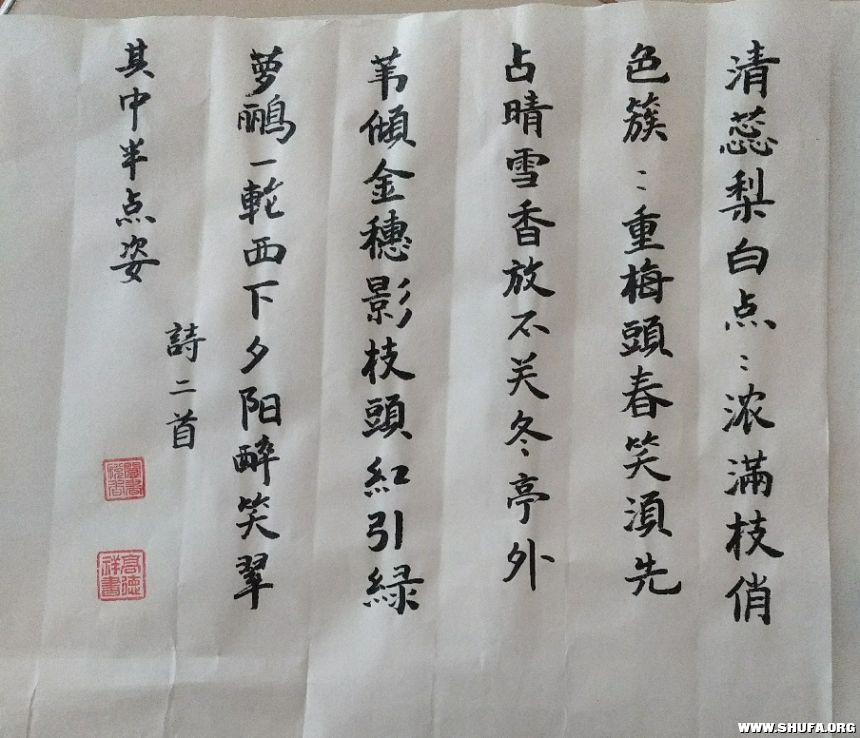 清蕊梨白点：浓滿枝俏
色簇：重梅頭春笑湏先
占晴雪香放不关冬亭外
苇傾金穗影枝頭紅引緑
萝鸝一乾西下夕阳醉笑翠
其中半点姿
詩二首
高德祥書
WWW.SHUFA.ORG